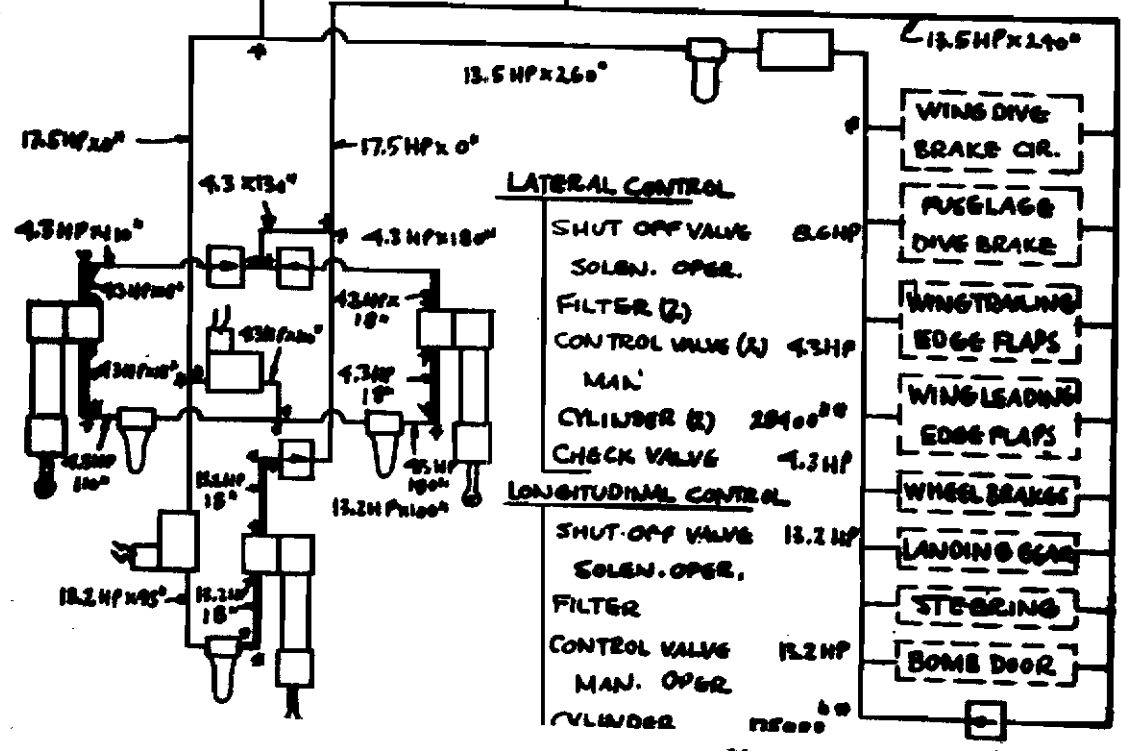 13.5 HP x 240"
13.5 HP x 260"
17.5 HP x 0"
17.5 HP x 0"
4.3 x 130"
4.3 HP x 110"
4.3 HP x 180"
4.3 HP x
18"
4.3 HP
18"
4.3 HP
110"
13.2 HP
18"
13.2 HP x 100"
13.2 HP x 95"
13.2 HP
18"
LATERAL CONTROL
SHUT OFF VALVE 8.6 HP
SOLEN. OPER.
FILTER (2)
CONTROL VALVE (2) 4.3 HP
MAN.
CYLINDER (2)
CHECK VALVE 4.3 HP
LONGITUDINAL CONTROL
SHUT-OFF VALVE 13.2 HP
SOLEN. OPER.
FILTER
CONTROL VALVE 13.2 HP
MAN. OPER.
CYLINDER
WING DIVE
BRAKE CIR.
FUSELAGE
DIVE BRAKE
WING TRAILING
EDGE FLAPS
WING LEADING
EDGE FLAPS
WHEEL BRAKES
LANDING GEAR
STEERING
BOMB DOOR